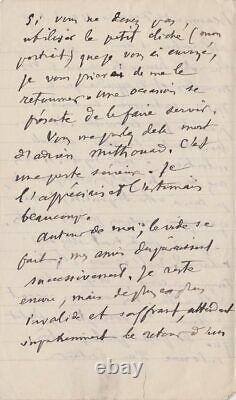 Si vous ne devez pas,
utiliser le petit cliché (mon
portrait) que je vous ai envoyé,
je vous prierais de me le
retourner. Une occasion se
présente de le faire servir.
Vous me parlez de la mort
d'Adrien Mithouard. C'est
une perte sérieuse. Je
l'appréciais et l'estimais
beaucoup.
Autour de moi, le vide se
fait; mes amis disparaissent
successivement. Je reste
encore, mais de plus en plus
invalide et souffrant, attendant
impatiemment le retour d'un
ebay